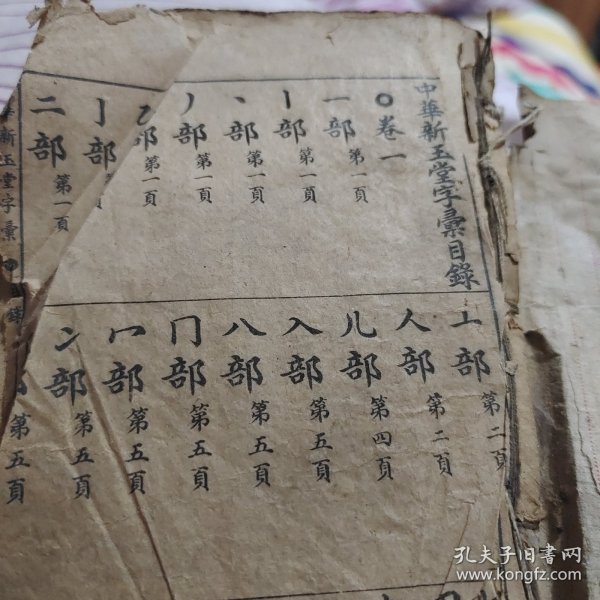 中華新玉堂字彙目錄
○卷一
一部 第一頁
丨部 第一頁
丶部 第一頁
丿部 第一頁
乙部 第一頁
亅部 第一頁
二部 第一頁
亠部 第二頁
人部 第二頁
儿部 第四頁
入部 第五頁
八部 第五頁
冂部 第五頁
冖部 第五頁
冫部 第五頁
第五頁
華新玉堂字彙
孔夫子旧书网
www.kongfz.com